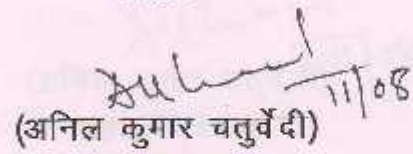 11/08
(अनिल कुमार चतुर्वेदी)